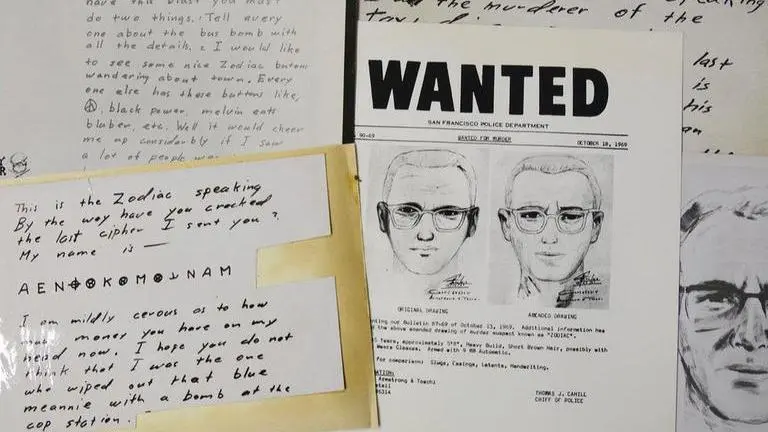 have this blast you must
do two things. 1 Tell every
one about the bus bomb with
all the details. 2 I would like
to see some nice Zodiac butons
wandering about town. Every
one else has these buttons like,
☮, black power, melvin eats
bluber, etc. Well it would cheer
me up considerbly if I saw
a lot of people
This is the Zodiac speaking
By the way have you cracked
the last cipher I sent you?
My name is —
A E N ⌖ ⊗ K ⊗ M ⊗ ⅃ N A M
I am mildly cerous as to how
much money you have on my
head now. I hope you do not
think that I was the one
who wiped out that blue
meannie with a bomb at the
cop station.
speaking
the murderer of the
last
is
his
an
WANTED
SAN FRANCISCO POLICE DEPARTMENT
90-69 WANTED FOR MURDER OCTOBER 18, 1969
ORIGINAL DRAWING AMENDED DRAWING
our Bulletin 87-69 of October 13, 1969. Additional information has
the above amended drawing of murder suspect known as "ZODIAC".
Years, approximately 5'8", Heavy Build, Short Brown Hair, possibly with
Wears Glasses. Armed with 9 MM Automatic.
for comparison: Slugs, Casings, Latents, Handwriting.
Armstrong & Toschi
THOMAS J. CAHILL
CHIEF OF POLICE